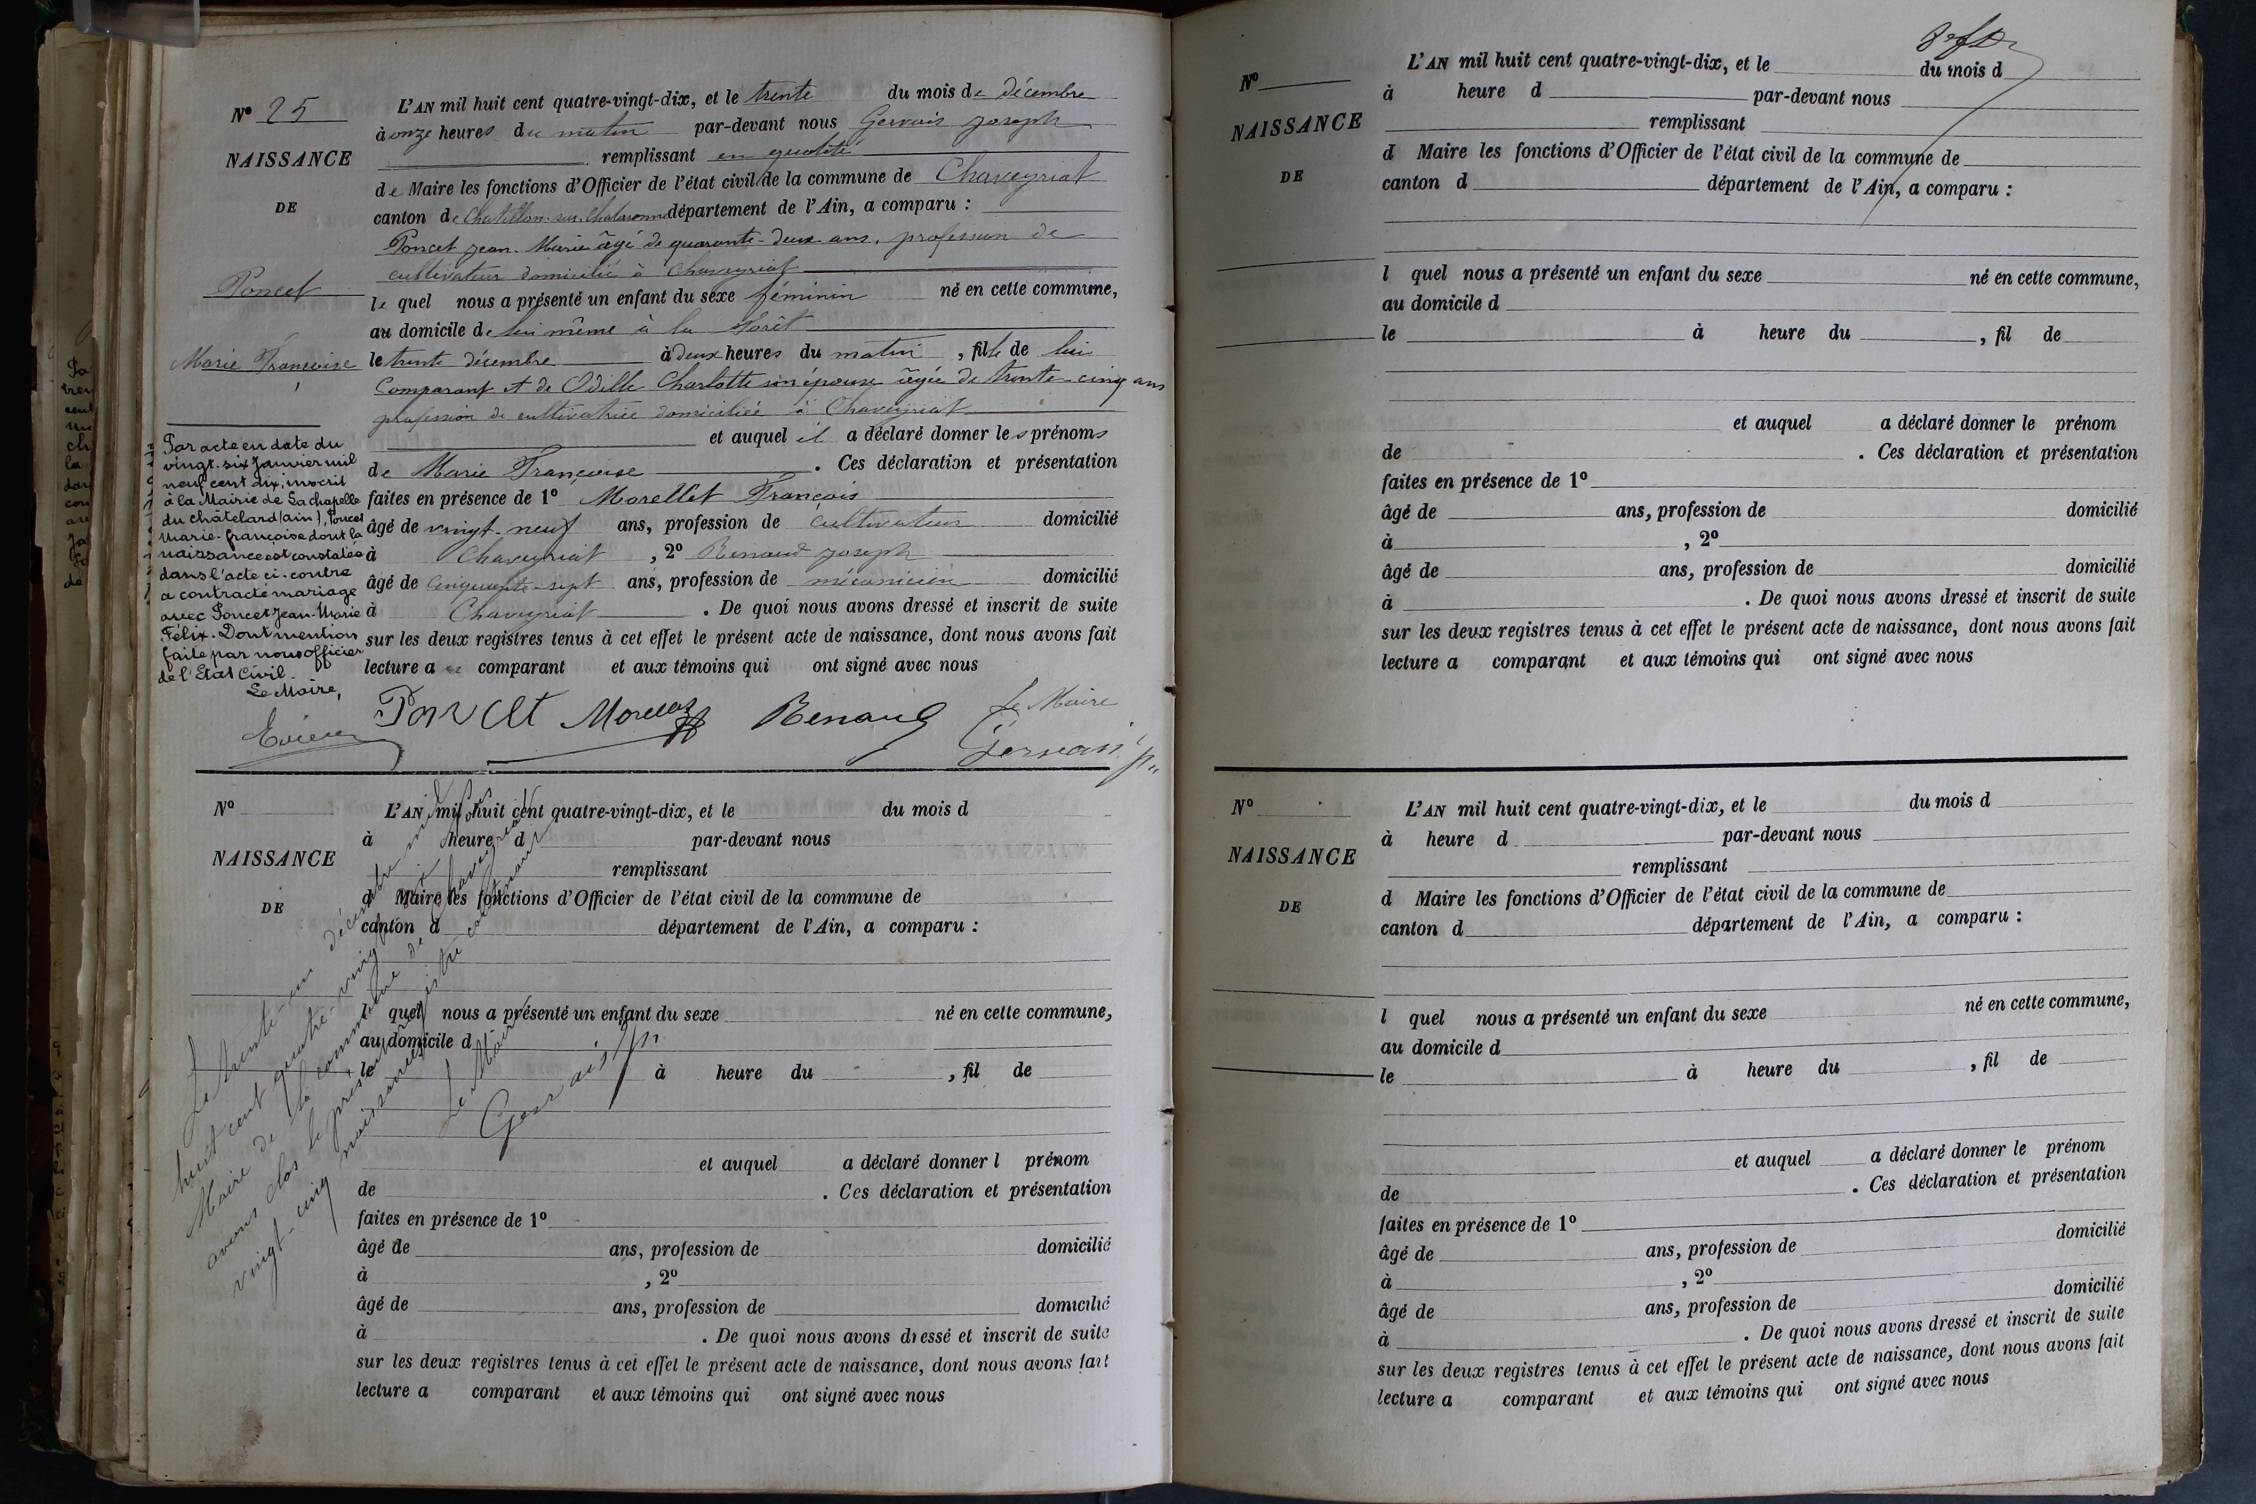 N° 25
NAISSANCE
DE
Poncet
Marie Françoise
L'AN mil huit cent quatre-vingt-dix, et le trente du mois de décembre
à onze heures du matin par-devant nous Gervais Joseph
remplissant en qualité
de Maire les fonctions d'Officier de l'état civil de la commune de Chaveyriat
canton de Chatillon-sur-Chalaronne département de l'Ain, a comparu :
Poncet Jean-Marie âgé de quarante-deux ans, profession de
cultivateur domicilié à Chaveyriat
le quel nous a présenté un enfant du sexe féminin né en cette commune,
au domicile de lui même à la Forêt
le trente décembre à deux heures du matin, fille de lui
Comparant et de Odille Charlotte son épouse âgée de trente-cinq ans
profession de cultivatrice domiciliée à Chaveyriat
et auquel il a déclaré donner les prénoms
de Marie Françoise. Ces déclaration et présentation
faites en présence de 1° Morellet François
âgé de vingt-neuf ans, profession de cultivateur domicilié
à Chaveyriat, 2° Renaud Joseph
âgé de cinquante-sept ans, profession de mécanicien domicilié
à Chaveyriat. De quoi nous avons dressé et inscrit de suite
sur les deux registres tenus à cet effet le présent acte de naissance, dont nous avons fait
lecture au comparant et aux témoins qui ont signé avec nous
Par acte en date du
vingt-six Janvier mil
neuf cent dix, inscrit
à la Mairie de La chapelle
du châtelard (ain), Poncet
Marie-françoise dont la
naissance est constatée
dans l'acte ci-contre
a contracté mariage
avec Poncet Jean-Marie
Félix. Dont mention
faite par nous officier
de l'État Civil.
Le Maire,
Poncet Renaud
Le Maire
Gervais
N°
NAISSANCE
DE
L'AN mil huit cent quatre-vingt-dix, et le du mois d
à heure d par-devant nous
remplissant
d Maire les fonctions d'Officier de l'état civil de la commune de
canton d département de l'Ain, a comparu :
l quel nous a présenté un enfant du sexe né en cette commune,
au domicile d
le à heure du , fil de
et auquel a déclaré donner l prénom
de . Ces déclaration et présentation
faites en présence de 1°
âgé de ans, profession de domicilié
à , 2°
âgé de ans, profession de domicilié
à . De quoi nous avons dressé et inscrit de suite
sur les deux registres tenus à cet effet le présent acte de naissance, dont nous avons fait
lecture a comparant et aux témoins qui ont signé avec nous
Le trente-un décembre mil
huit cent quatre-vingt-dix
Maire de la commune de Chaveyriat
avons clos le présent registre contenant
vingt-cinq naissances
Le Maire
Gervais
N°
NAISSANCE
DE
L'AN mil huit cent quatre-vingt-dix, et le du mois d
à heure d par-devant nous
remplissant
d Maire les fonctions d'Officier de l'état civil de la commune de
canton d département de l'Ain, a comparu :
l quel nous a présenté un enfant du sexe né en cette commune,
au domicile d
le à heure du , fil de
et auquel a déclaré donner le prénom
de . Ces déclaration et présentation
faites en présence de 1°
âgé de ans, profession de domicilié
à , 2°
âgé de ans, profession de domicilié
à . De quoi nous avons dressé et inscrit de suite
sur les deux registres tenus à cet effet le présent acte de naissance, dont nous avons fait
lecture a comparant et aux témoins qui ont signé avec nous
N°
NAISSANCE
DE
L'AN mil huit cent quatre-vingt-dix, et le du mois d
à heure d par-devant nous
remplissant
d Maire les fonctions d'Officier de l'état civil de la commune de
canton d département de l'Ain, a comparu :
l quel nous a présenté un enfant du sexe né en cette commune,
au domicile d
le à heure du , fil de
et auquel a déclaré donner le prénom
de . Ces déclaration et présentation
faites en présence de 1°
âgé de ans, profession de domicilié
à , 2°
âgé de ans, profession de domicilié
à . De quoi nous avons dressé et inscrit de suite
sur les deux registres tenus à cet effet le présent acte de naissance, dont nous avons fait
lecture a comparant et aux témoins qui ont signé avec nous